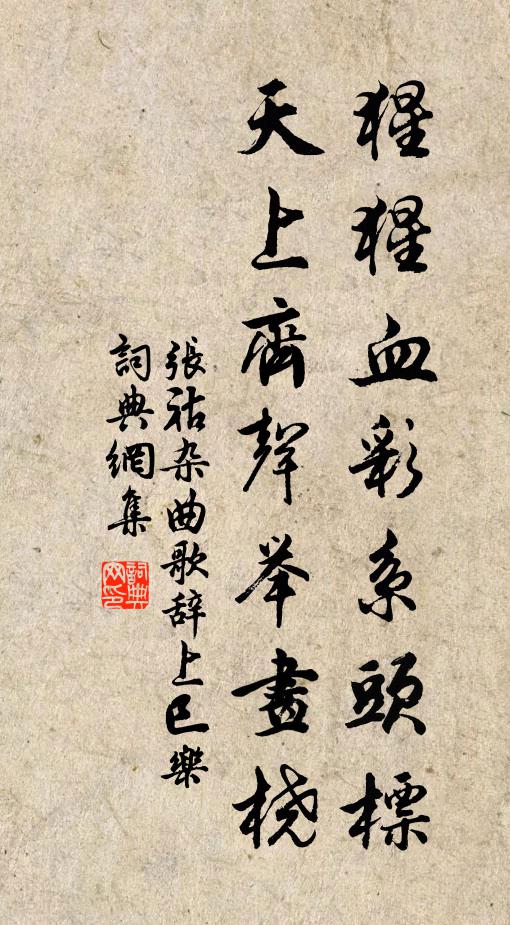 猩猩血彩系頭標
天上齊聲举畫桡
張祜杂曲歌辞上巳樂
詞典網集
詞典网印